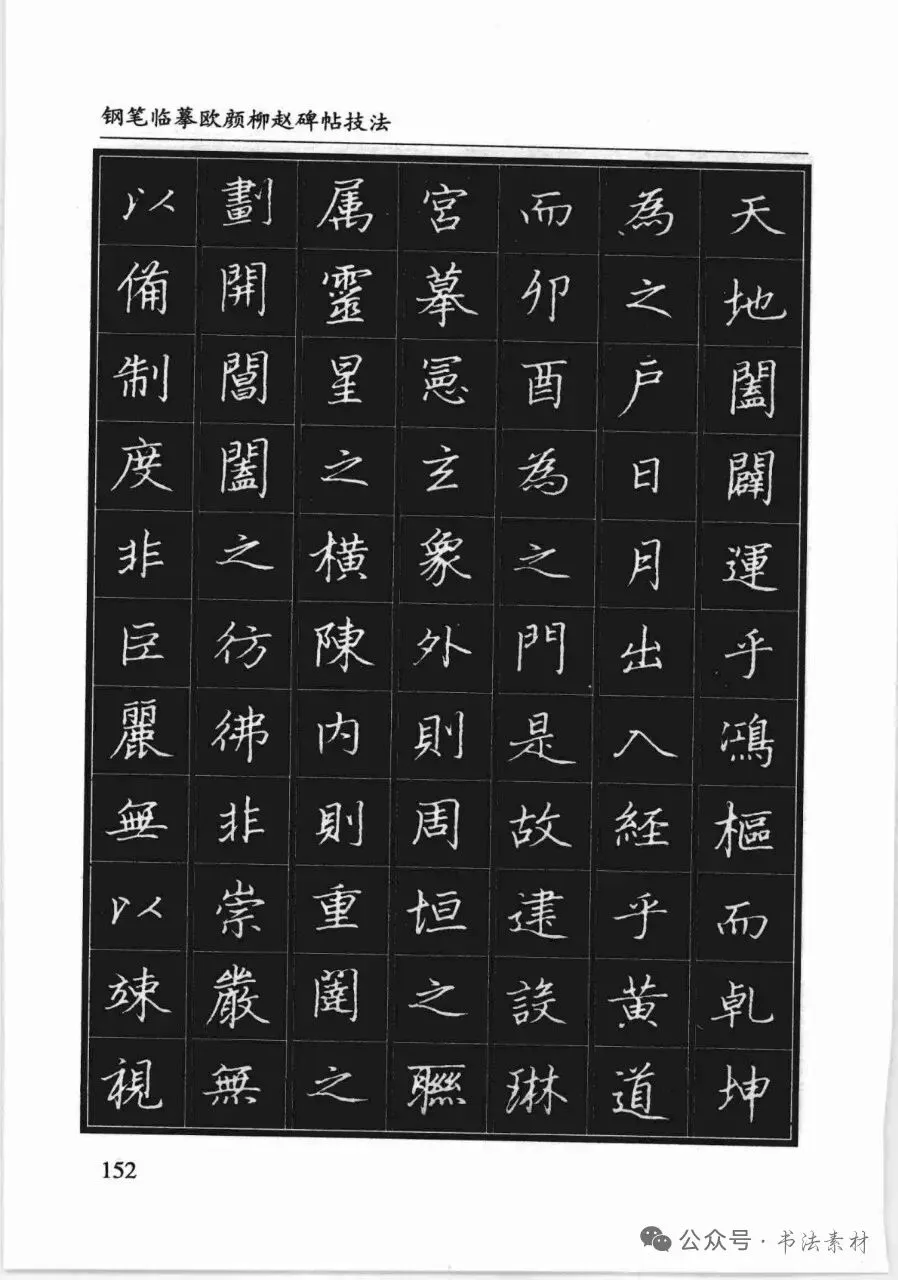 钢笔临摹欧颜柳赵碑帖技法
天地闔闢運乎鴻樞而乹坤
為之户日月出入經乎黄道
而卯酉為之門是故建設琳
宮摹憲玄象外則周垣之聯
属靈星之横陳内則重闈之
劃開閶闔之彷彿非崇嚴無
以備制度非巨麗無以竦視
152
公众号·书法素材